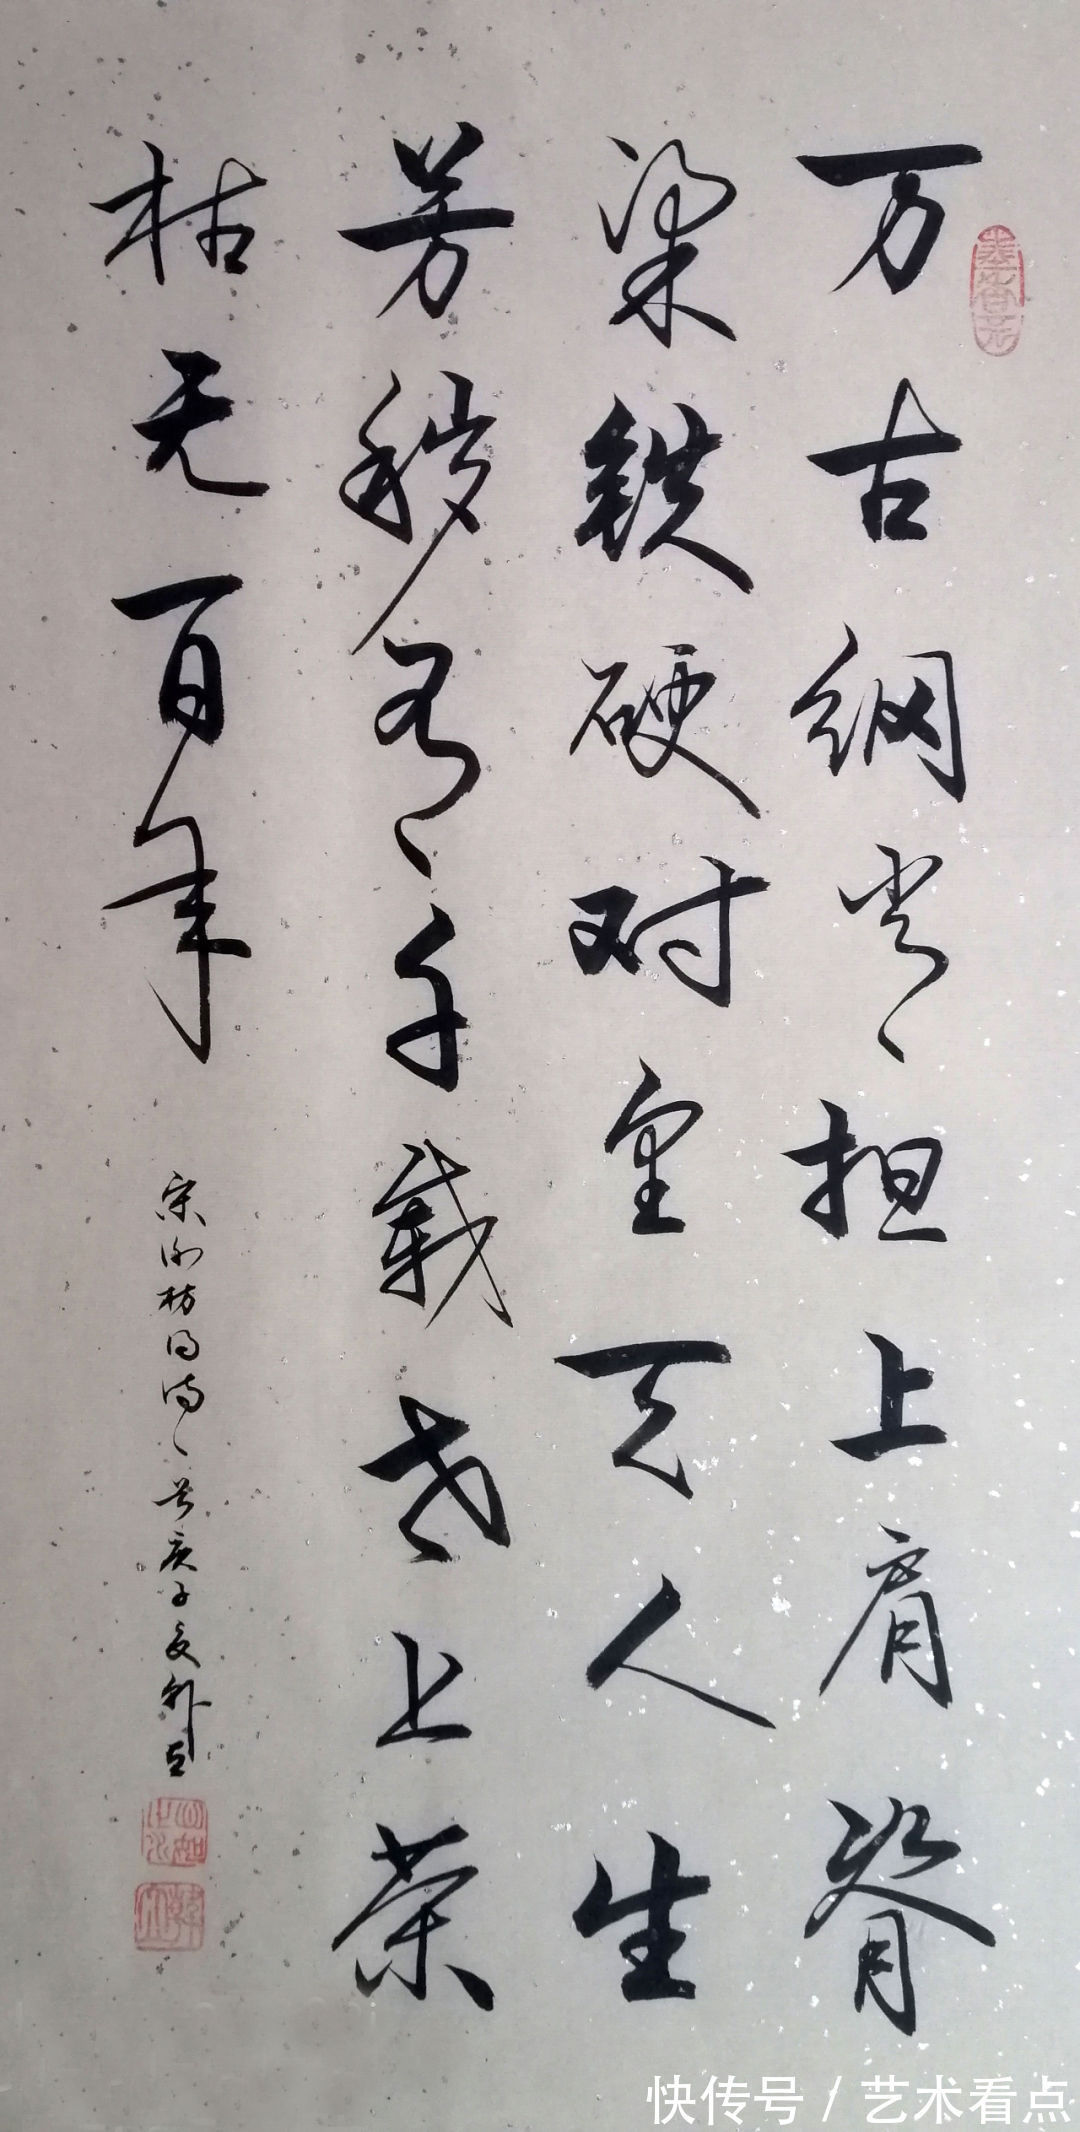 万古纲常担上肩脊
梁鉄硬对皇天人生
芳秽有千载世上荣
枯无百年
宋谢枋得诗一首庚子夏
快传号 / 艺术看点